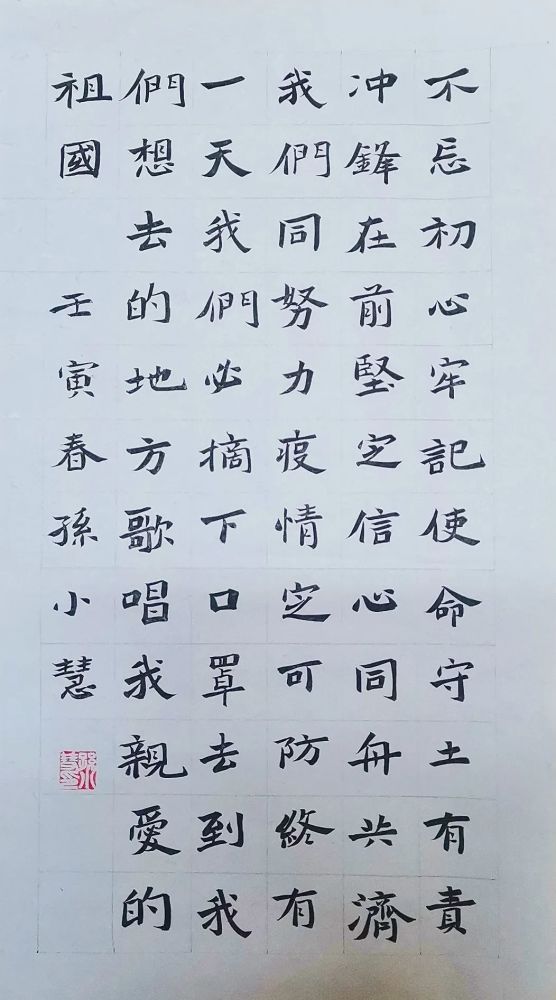 不忘初心牢記使命守土有責
冲鋒在前堅定信心同舟共濟
我們同努力疫情定可防終有
一天我們必摘下口罩去到我
們想去的地方歌唱我親愛的
祖國
壬寅春孫小慧
孫小慧印